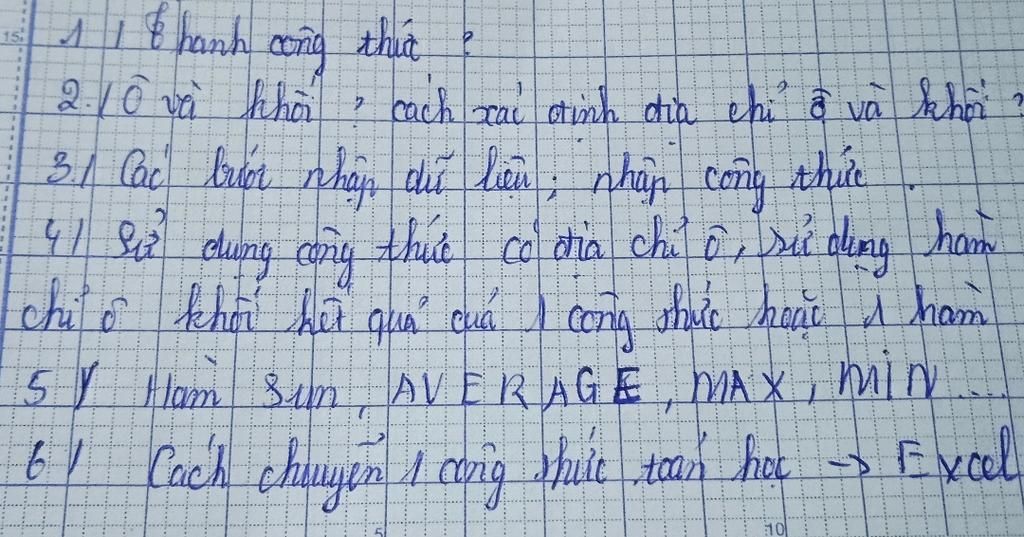 1/ Thanh công thức ?
2./ Ô và khối ? cách xác định địa chỉ ô và khối ?
3./ Các bước nhập dữ liệu, nhập công thức.
4/ Sử dụng công thức có địa chỉ ô, sử dụng hàm
chỉ ô khối kết quả của 1 công thức hoặc 1 hàm
5/ Hàm Sum, AVERAGE, MAX, MIN....
6/ Cách chuyển 1 công thức toán học -> Excel
15
5
10